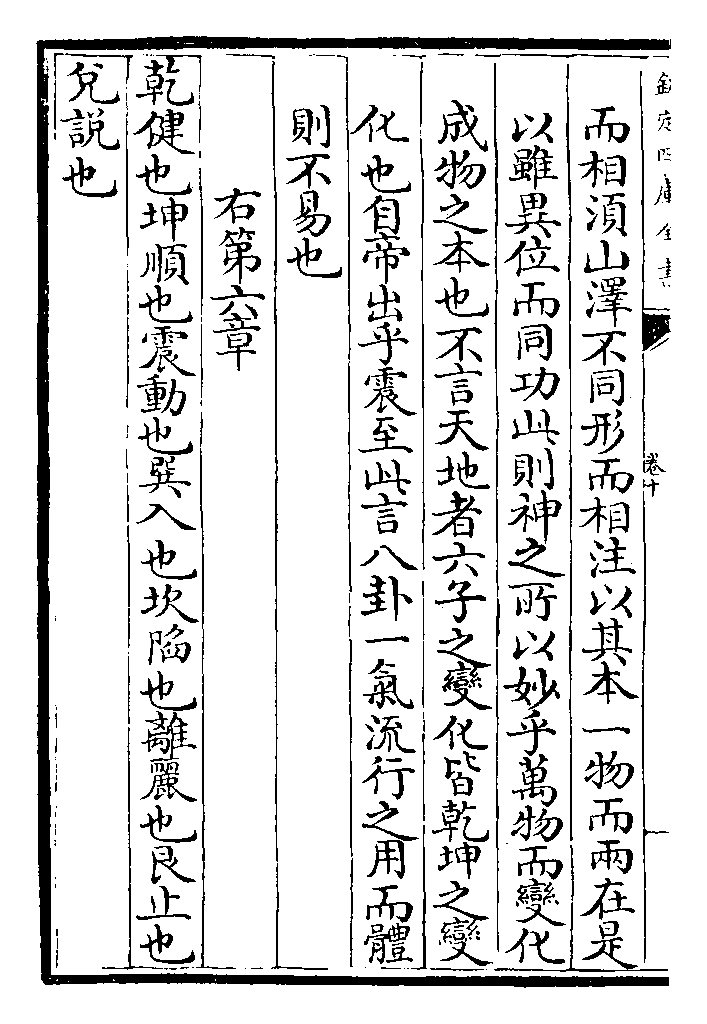 欽定四庫全書
卷十
而相湏山澤不同形而相注以其本一物而兩在是
以雖異位而同功此則神之所以妙乎萬物而變化
成物之本也不言天地者六子之變化皆乾坤之變
化也自帝出乎震至此言八卦一氣流行之用而體
則不易也
右第六章
乾健也坤順也震動也巽入也坎陷也離麗也艮止也
兌說也